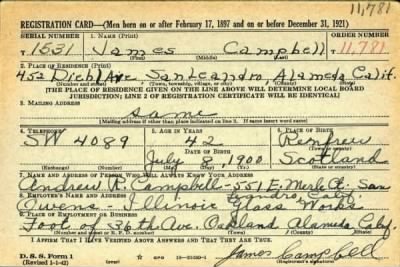 11,781
REGISTRATION CARD—(Men born on or after February 17, 1897 and on or before December 31, 1921)
SERIAL NUMBER 1. NAME (Print) ORDER NUMBER
T 1531 James Campbell 11,781
(First) (Middle) (Last)
2. PLACE OF RESIDENCE (Print)
452 Diehl Ave San Leandro, Alameda Calif.
(Number and street) (Town, township, village, or city) (County) (State)
[THE PLACE OF RESIDENCE GIVEN ON THE LINE ABOVE WILL DETERMINE LOCAL BOARD
JURISDICTION; LINE 2 OF REGISTRATION CERTIFICATE WILL BE IDENTICAL]
3. MAILING ADDRESS
same
[Mailing address if other than place indicated on line 2. If same insert word same]
4. TELEPHONE 5. AGE IN YEARS 6. PLACE OF BIRTH
42 Renfrew
SW 4089 DATE OF BIRTH (Town or county)
July 8, 1900 Scotland
(Exchange) (Number) (Mo.) (Day) (Yr.) (State or country)
7. NAME AND ADDRESS OF PERSON WHO WILL ALWAYS KNOW YOUR ADDRESS
Andrew R. Campbell - 551 E. Merle St. San
8. EMPLOYER'S NAME AND ADDRESS Leandro Calif.
Owens - Illinois Glass Works
9. PLACE OF EMPLOYMENT OR BUSINESS
Foot of 36th Ave. Oakland Alameda Calif.
(Number and street or R. F. D. number) (Town) (County) (State)
I AFFIRM THAT I HAVE VERIFIED ABOVE ANSWERS AND THAT THEY ARE TRUE.
D. S. S. Form 1
(Revised 1-1-42) (over) GPO James Campbell
(Registrant's signature)